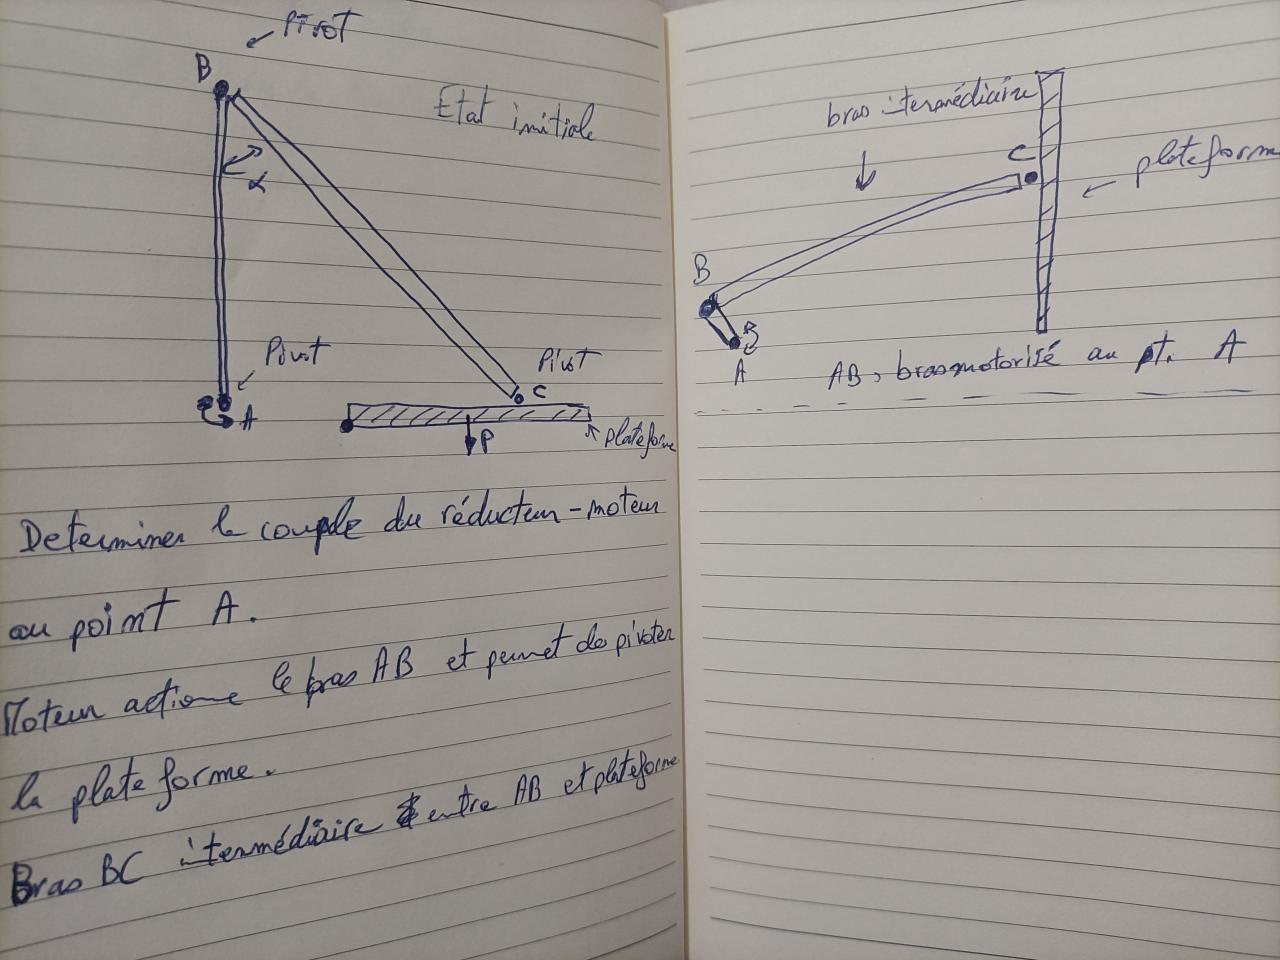 Pivot
B
Etat initiale
α
Pivot
Pivot
A
C
P
plateforme
Determiner le couple du réducteur-moteur
au point A.
Moteur actionne le bras AB et permet de pivoter
la plate forme.
Bras BC intermédiaire entre AB et plateforme
bras intermédiaire
C
plateforme
B
A
AB, bras motorisé au pt. A